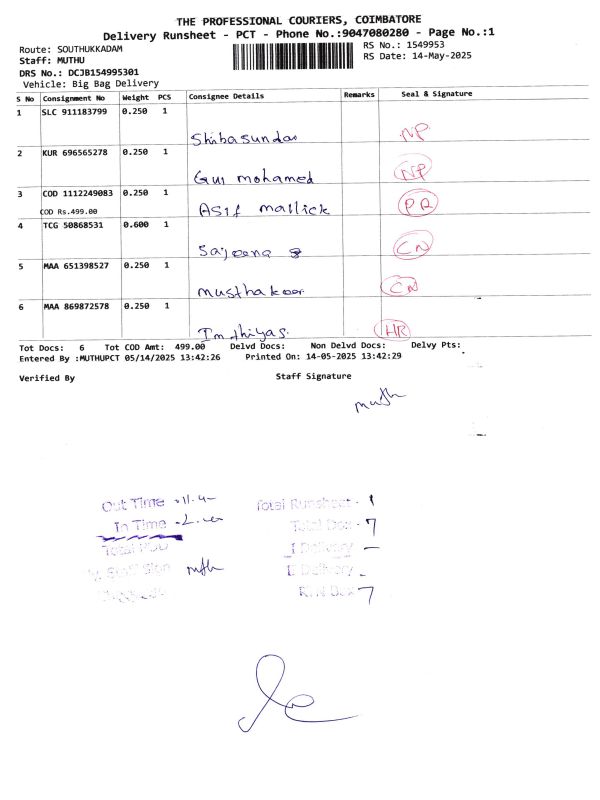 THE PROFESSIONAL COURIERS, COIMBATORE
Delivery Runsheet - PCT - Phone No.:9047080280 - Page No.:1
Route: SOUTHUKKADAM
RS No.: 1549953
Staff: MUTHU
RS Date: 14-May-2025
DRS No.: DCJB154995301
Vehicle: Big Bag Delivery
S No Consignment No Weight PCS Consignee Details Remarks Seal & Signature
1 SLC 911183799 0.250 1
Shibasundar NP
2 KUR 696565278 0.250 1
Gul mohamed NP
3 COD 1112249083 0.250 1
COD Rs.499.00 Asif mallick PR
4 TCG 50868531 0.600 1
Sajeena CN
5 MAA 651398527 0.250 1
musthakeer CN
6 MAA 869872578 0.250 1
Imthiyas. HR
Tot Docs: 6 Tot COD Amt: 499.00 Delvd Docs: Non Delvd Docs: Delvy Pts:
Entered By :MUTHUPCT 05/14/2025 13:42:26 Printed On: 14-05-2025 13:42:29
Verified By Staff Signature
muth
Out Time Total Runsheet - 1
In Time Total Dox - 7
I Delivery -
Sign muth II Delivery -
Dox 7